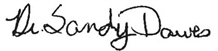 Dr. Sandy Dawes